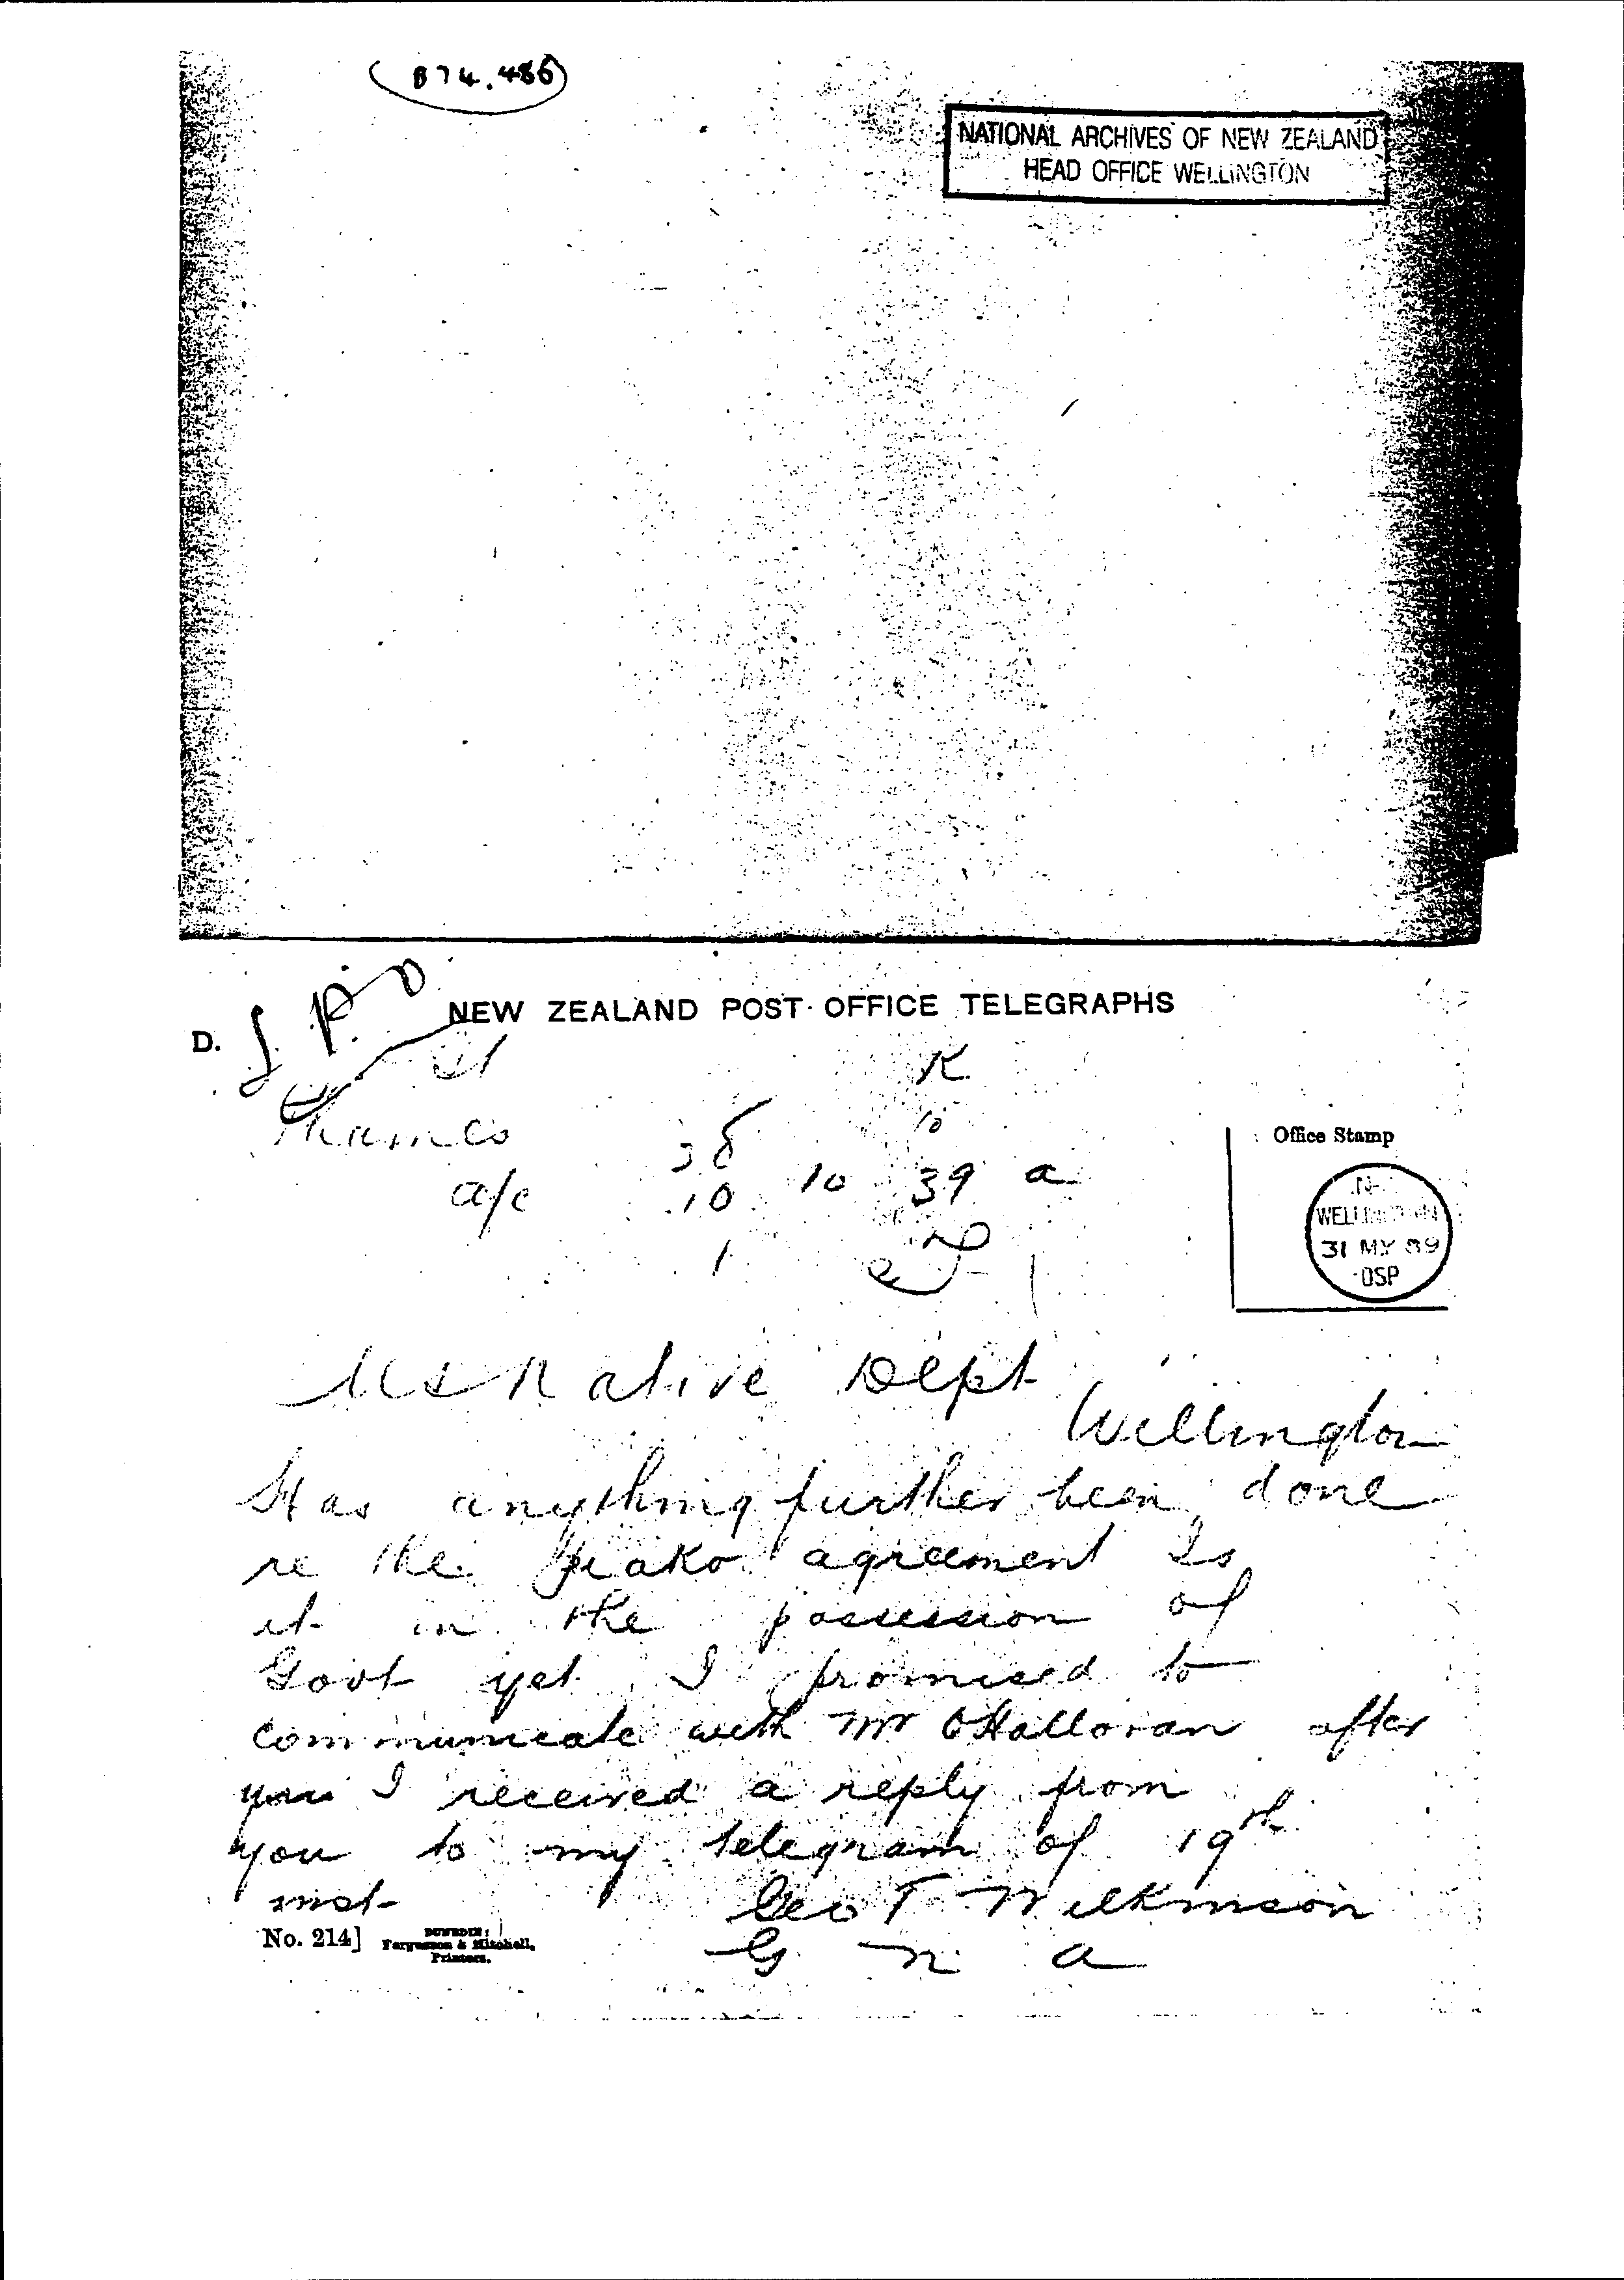 874.486
NATIONAL ARCHIVES OF NEW ZEALAND
HEAD OFFICE WELLINGTON
NEW ZEALAND POST OFFICE TELEGRAPHS
D.
K
Thames 38 10
a/c 10 10 39 a
1
Office Stamp
WELLINGTON
31 MY 89
OSP
US Native Dept
Wellington
Has anything further been done
re the Piako agreement Is
it in the possession of
Govt yet I promised to
communicate with Mr OHalloran after
I received a reply from
you to my telegram of 19th
inst
Geo T Wilkinson
G N A
No. 214]
DUNEDIN:
Fergusson & Mitchell,
Printers.